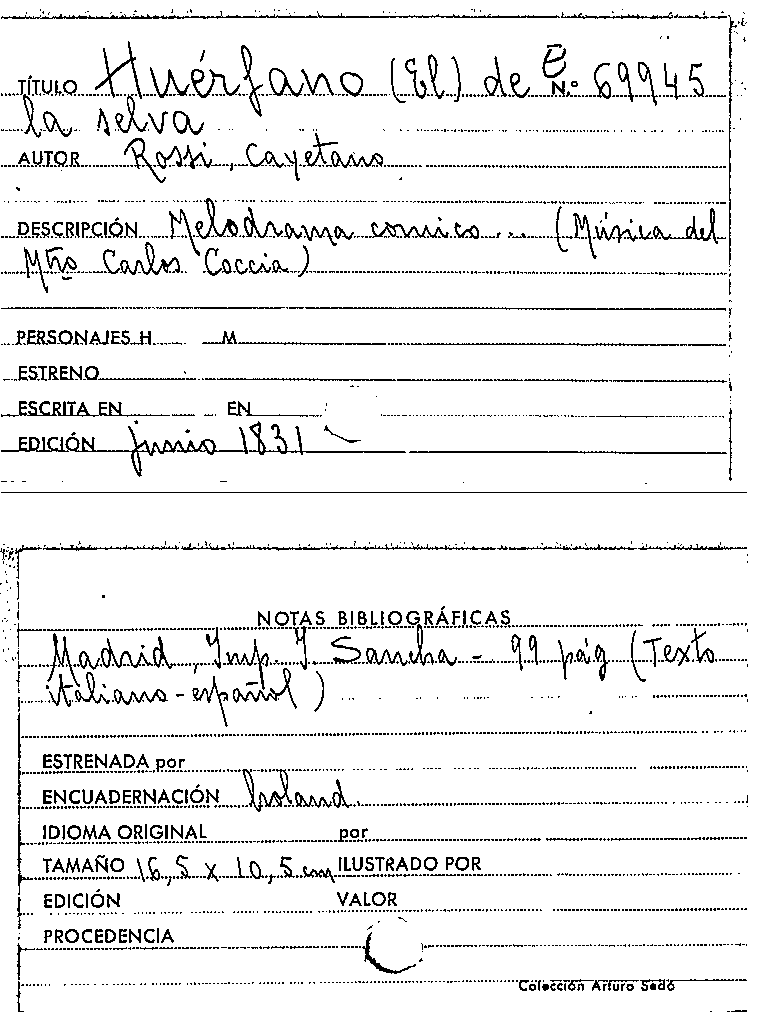 TÍTULO Huérfano (El) de e N.º 69945
la selva
AUTOR Rossi, Cayetano
DESCRIPCIÓN Melodrama comico... (Música del
Mtro Carlos Coccia)
PERSONAJES H M
ESTRENO
ESCRITA EN EN
EDICIÓN junio 1831
NOTAS BIBLIOGRÁFICAS
Madrid, Imp. I. Sancha - 99 pág (Texto
italiano-español)
ESTRENADA por
ENCUADERNACIÓN holand.
IDIOMA ORIGINAL por
TAMAÑO 16,5 x 10,5 cm ILUSTRADO POR
EDICIÓN VALOR
PROCEDENCIA
Colección Arturo Sedó